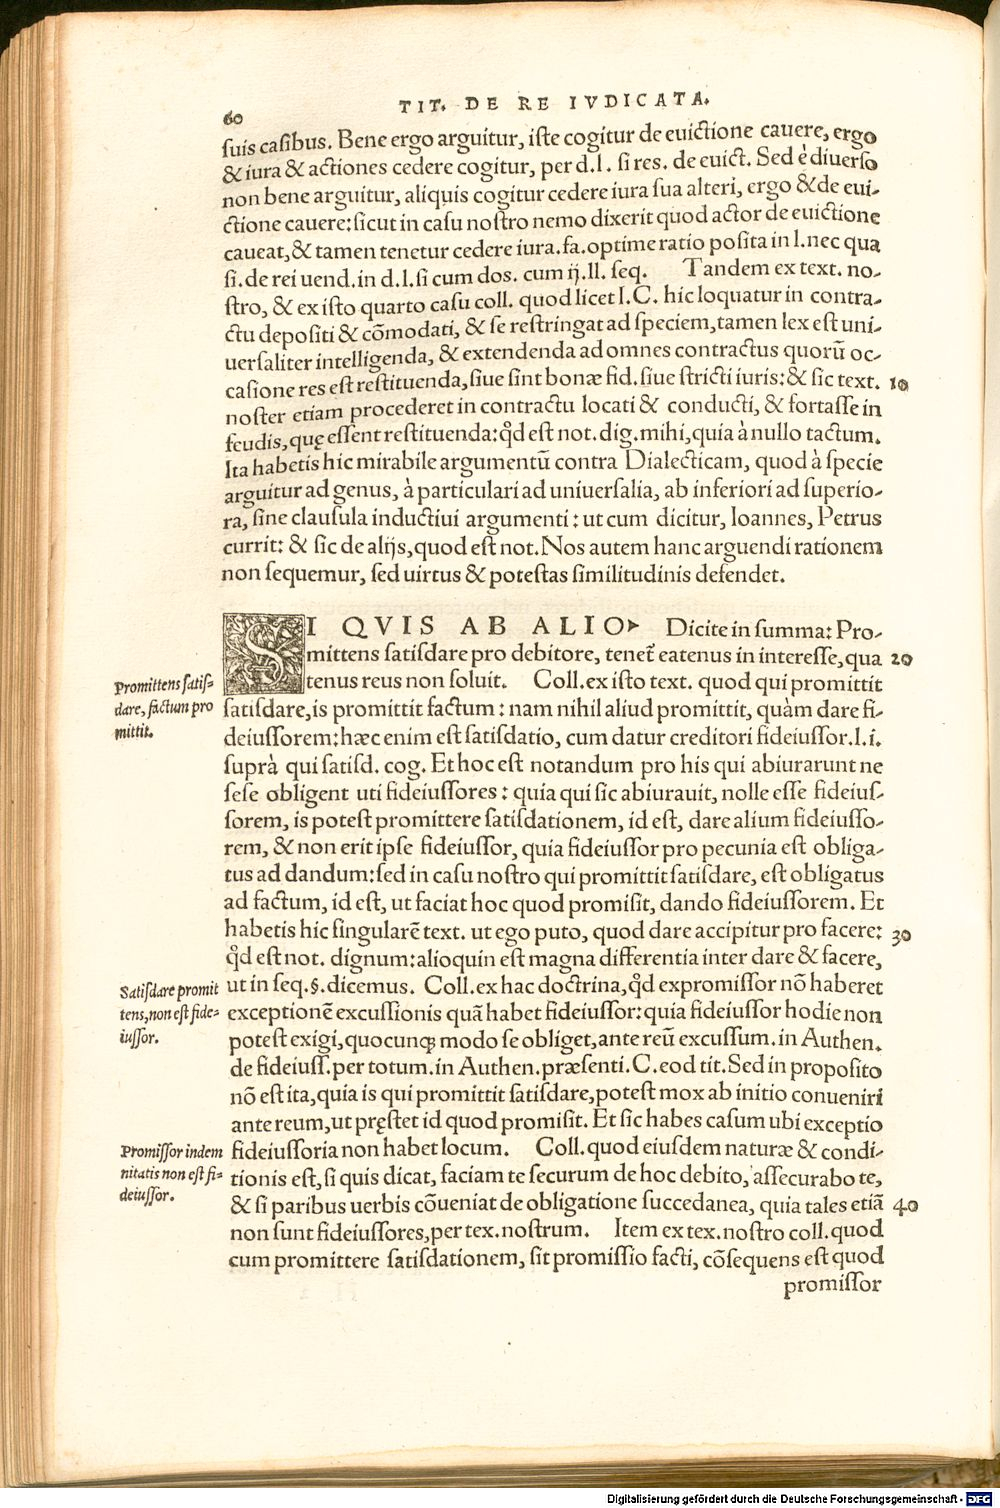 60
TIT. DE RE IVDICATA.
suis casibus. Bene ergo arguitur, iste cogitur de euictione cauere, ergo
& iura & actiones cedere cogitur, per d.l. si res. de euict. Sed è diuerso
non bene arguitur, aliquis cogitur cedere iura sua alteri, ergo & de eui-
ctione cauere: sicut in casu nostro nemo dixerit quod actor de euictione
caueat, & tamen tenetur cedere iura. fa. optime ratio posita in l. nec qua
si. de rei uend. in d.l. si cum dos. cum ij. ll. seq. Tandem ex text. no-
stro, & ex isto quarto casu coll. quod licet I.C. hic loquatur in contra-
ctu depositi & cõmodati, & se restringat ad speciem, tamen lex est uni-
uersaliter intelligenda, & extendenda ad omnes contractus quorũ oc-
casione res est restituenda, siue sint bonæ fid. siue stricti iuris: & sic text. 10
noster etiam procederet in contractu locati & conducti, & fortasse in
feudis, quę essent restituenda: qd̃ est not. dig. mihi, quia à nullo tactum.
Ita habetis hic mirabile argumentũ contra Dialecticam, quod à specie
arguitur ad genus, à particulari ad uniuersalia, ab inferiori ad superio-
ra, sine clausula inductiui argumenti: ut cum dicitur, Ioannes, Petrus
currit: & sic de alijs, quod est not. Nos autem hanc arguendi rationem
non sequemur, sed uirtus & potestas similitudinis defendet.
SI QVIS AB ALIO Dicite in summa: Pro-
mittens satisdare pro debitore, tenet̃ eatenus in interesse, qua 20
tenus reus non soluit. Coll. ex isto text. quod qui promittit
Promittens satis-
dare, factum pro
mittit.
satisdare, is promittit factum: nam nihil aliud promittit, quàm dare fi-
deiussorem: hæc enim est satisdatio, cum datur creditori fideiussor. l. i.
suprà qui satisd. cog. Et hoc est notandum pro his qui abiurarunt ne
sese obligent uti fideiussores: quia qui sic abiurauit, nolle esse fideius-
sorem, is potest promittere satisdationem, id est, dare alium fideiusso-
rem, & non erit ipse fideiussor, quia fideiussor pro pecunia est obliga-
tus ad dandum: sed in casu nostro qui promittit satisdare, est obligatus
ad factum, id est, ut faciat hoc quod promisit, dando fideiussorem. Et
habetis hic singularẽ text. ut ego puto, quod dare accipitur pro facere: 30
qd̃ est not. dignum: alioquin est magna differentia inter dare & facere,
Satisdare promit
tens, non est fide-
iussor.
ut in seq. §. dicemus. Coll. ex hac doctrina, qd̃ expromissor nõ haberet
exceptionẽ excussionis quã habet fideiussor: quia fideiussor hodie non
potest exigi, quocunq; modo se obliget, ante reũ excussum. in Authen.
de fideiuss. per totum. in Authen. præsenti. C. eod tit. Sed in proposito
nõ est ita, quia is qui promittit satisdare, potest mox ab initio conueniri
ante reum, ut pręstet id quod promisit. Et sic habes casum ubi exceptio
Promissor indem
nitatis non est fi-
deiussor.
fideiussoria non habet locum. Coll. quod eiusdem naturæ & condi-
tionis est, si quis dicat, faciam te securum de hoc debito, assecurabo te,
& si paribus uerbis cõueniat de obligatione succedanea, quia tales etiã 40
non sunt fideiussores, per tex. nostrum. Item ex tex. nostro coll. quod
cum promittere satisdationem, sit promissio facti, cõsequens est quod
promissor
Digitalisierung gefördert durch die Deutsche Forschungsgemeinschaft - DFG